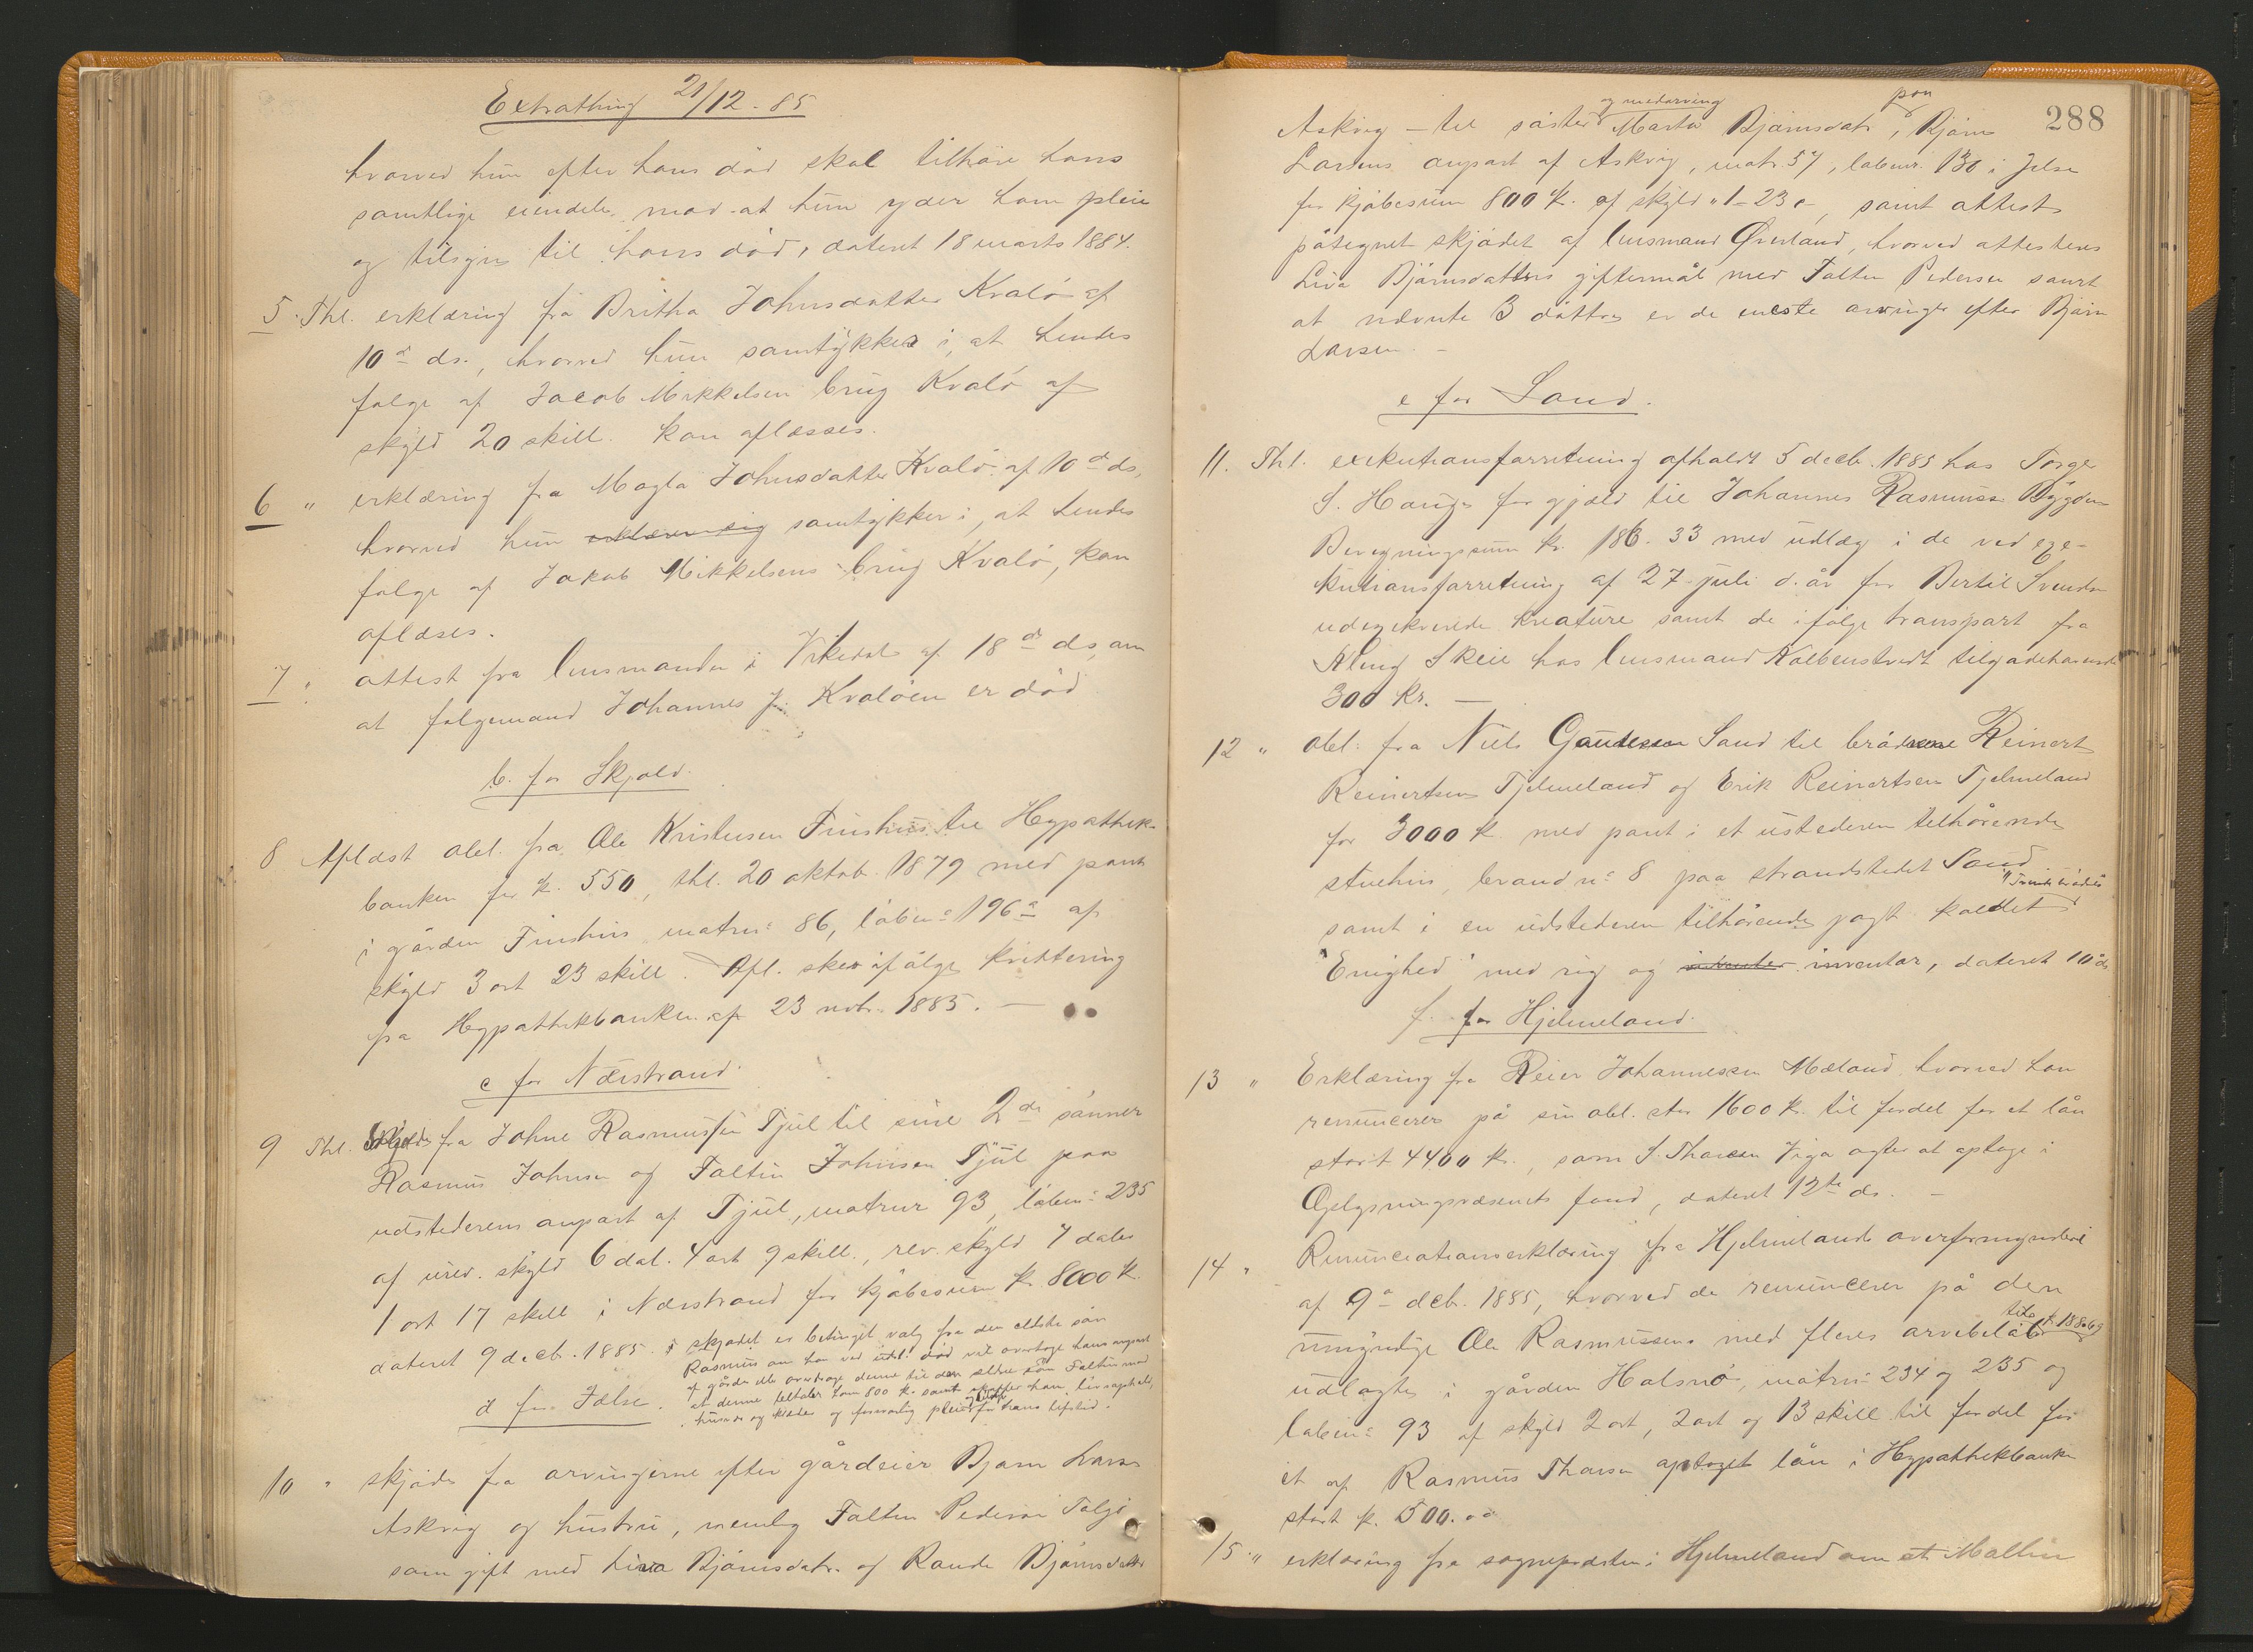 Extrathing 21/12-85
hvorved hun efter hans död skal tilhöre hans
samtlige eiendele mod at hun yder ham pleie
og tilsyn til hans död, dateret 18 marts 1884.
5. Thl. erklæring fra Britha Johnsdatter Kvalö af
10de ds., hvorved hun samtykker i, at hendes
folge af Jacob Mikkelsen brug Kvalö af
skyld 20 skill. kan aflæses.
6 " erklæring fra Magla Johnsdatter Kvalö af 10de ds.,
hvorved hun erklærer sig samtykker i, at hendes
folge af Jakob Mikkelsens brug Kvalö, kan
aflæses.
7 " attest fra lensmanden i Vikedal af 18de ds. om
at folgemand Johannes J. Kvalöen er död
b. for Skjold.
8 Aflæst obl. fra Ole Kristensen Finshus til Hypothek-
banken for kr. 550, thl. 20 oktob. 1879 med pant
i gården Finshus matrn: 86, löben: 196a af
skyld 3 ort 23 skill. Afl. sker ifölge kvittering
fra Hypothekbanken af 23 novbr. 1885. —
c for Nærstrand.
9 Thl. Skjöde fra Johne Rasmussen Tjul til sine 2de sönner
Rasmus Johnsen og Faltin Johnsen Tjul paa
udstederens anpart af Tjul, matrnr 93, löben: 235
af urev. skyld 6 dal. 4 ort 9 skill., rev. skyld 7 daler
1 ort 17 skill i Nærstrand for kjöbesum kr. 8000 kr.
dateret 9 decb. 1885. I skjödet er betinget valg for den ældste sön
Rasmus om han ved udst. död vil overtage hans anpart
af gården eller overdrage denne til den sön Faltin mod
at denne betaler ham 800 kr. samt skaffer ham livsophold,
husrum og klæder og forsvarlig pleie for hans livstid.
d for Jelse.
10 " skjöde fra arvingerne efter gårdeier Bjørn Larsen
Askvig og hustru, nemlig Faltin Pedersen Talgö
som gift med Liva Bjørnsdatr. og Rande Bjørnsdatter
288
Askvig – til söster og medarving Marta Bjørnsdatr, paa Bjørn
Larsens anpart af Askvig, matr. 57, löbenr. 130 i Jelse
for kjöbesum 800 kr. af skyld " 1 – 23 –, samt attest
påtegnet skjödet af lensmand Øverland, hvorved attesteres
Liva Bjørnsdatters giftermål med Faltin Pedersen samt
at nævnte 3 döttre er de eneste arvinger efter Bjørn
Larsen. –
e for Sand.
11. Thl. exekutionsforretning afholdt 5 decb. 1885 hos Torger
S. Hauge for gjæld til Johannes Rasmussen Bygden
Beregningssum kr. 186.33 med udlæg i de ved exe-
kutionsforretning af 27 juli d. år for Bertil Svendsen
udexekverede kreature samt de ifölge transport fra
Skeie hos lensmand Kolbenstvedt tilgodehavende
300 kr. —
12 " obl: fra Niels Gautesen Sand til brödrene Reinert
Reinertsen Tjelmeland og Erik Reinertsen Tjelmeland
for 3000 kr. med pant i et ustederen tilhörende
stuehus, brand n: 8 paa strandstedet Sand
samt i en udstederen tilhörende jagt kaldet
"Enighed" med rig og inventar, dateret 10 ds.
f. for Hjelmeland.
13 " Erklæring fra Reier Johannessen Mæland hvorved han
renuncerer på sin obl. stor 1600 kr. til fordel for et lån
stort 4400 kr., som S. Thorsen agter at optage i
Oplysningsvæsenets fond, dateret 12te ds. –
14 " Renunciationserklæring fra Hjelmelands overformynderi
af 9de decb. 1885, hvorved de renuncerer på den
umyndige Ole Rasmussens med fleres arvebelöb
udlagte i gården Halsnö, matrn: 234 og 235 og
löben: 93 af skyld 2 ort, 2 ort og 13 skill til fordel for
et af Rasmus Thorsen optaget lån i Hypothekbanken
stort kr. 500.00
15 " erklæring fra sognepræsten i Hjelmeland om at Mallin